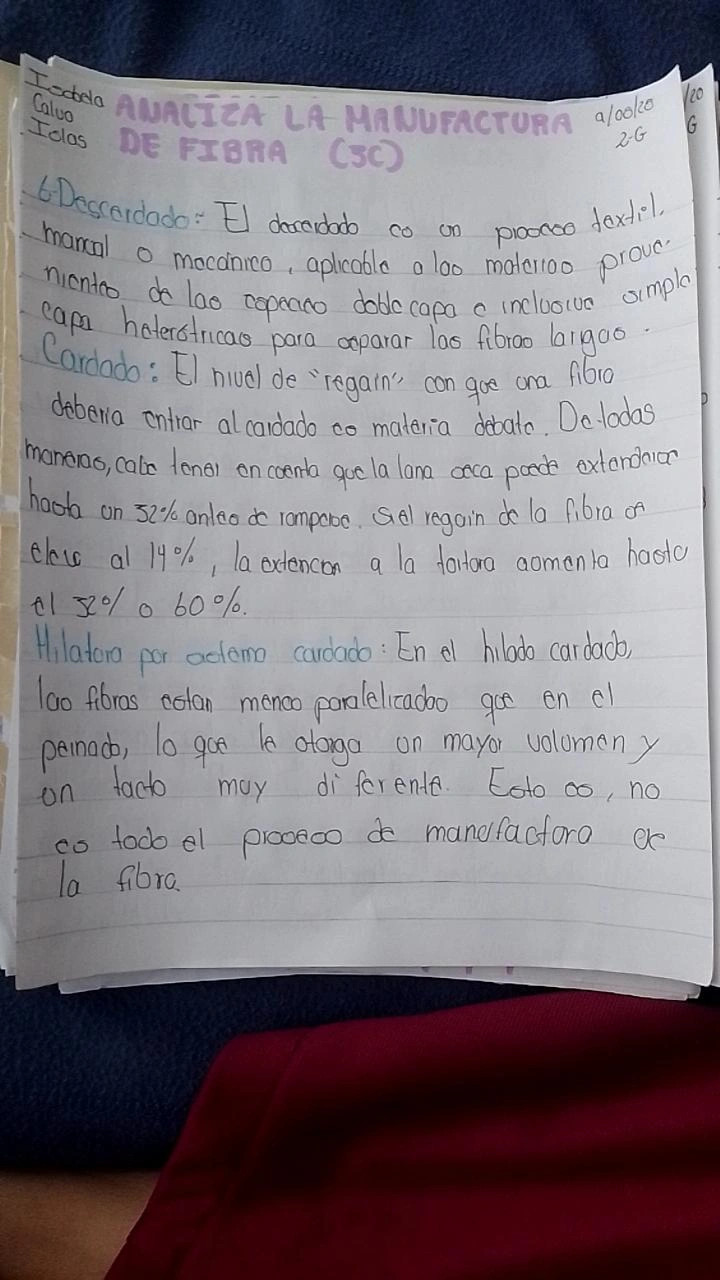 Isabela
Calvo
Islas
ANALIZA LA MANUFACTURA
DE FIBRA (3C)
2-G
/20
G
6-Descerdado: El descerdado es un proceso textil,
manual o mecánico, aplicable a las materias prove-
nientes de las especies doble capa e inclusive simple
capa heterotricas para separar las fibras largas.
Cardado: El nivel de "regain" con que una fibra
deberia entrar al cardado es materia debate. De todas
maneras, cabe tener en cuenta que la lana seca puede extenderse
hasta un 32% antes de romperse. Si el regain de la fibra se
eleva al 14%, la extencion a la rotura aumenta hasta
el 52% o 60%.
Hilatura por sistema cardado: En el hilado cardado,
las fibras estan menos paralelizadas que en el
peinado, lo que le otorga un mayor volumen y
un tacto muy diferente. Esto es, no
es todo el proceso de manufactura de
la fibra